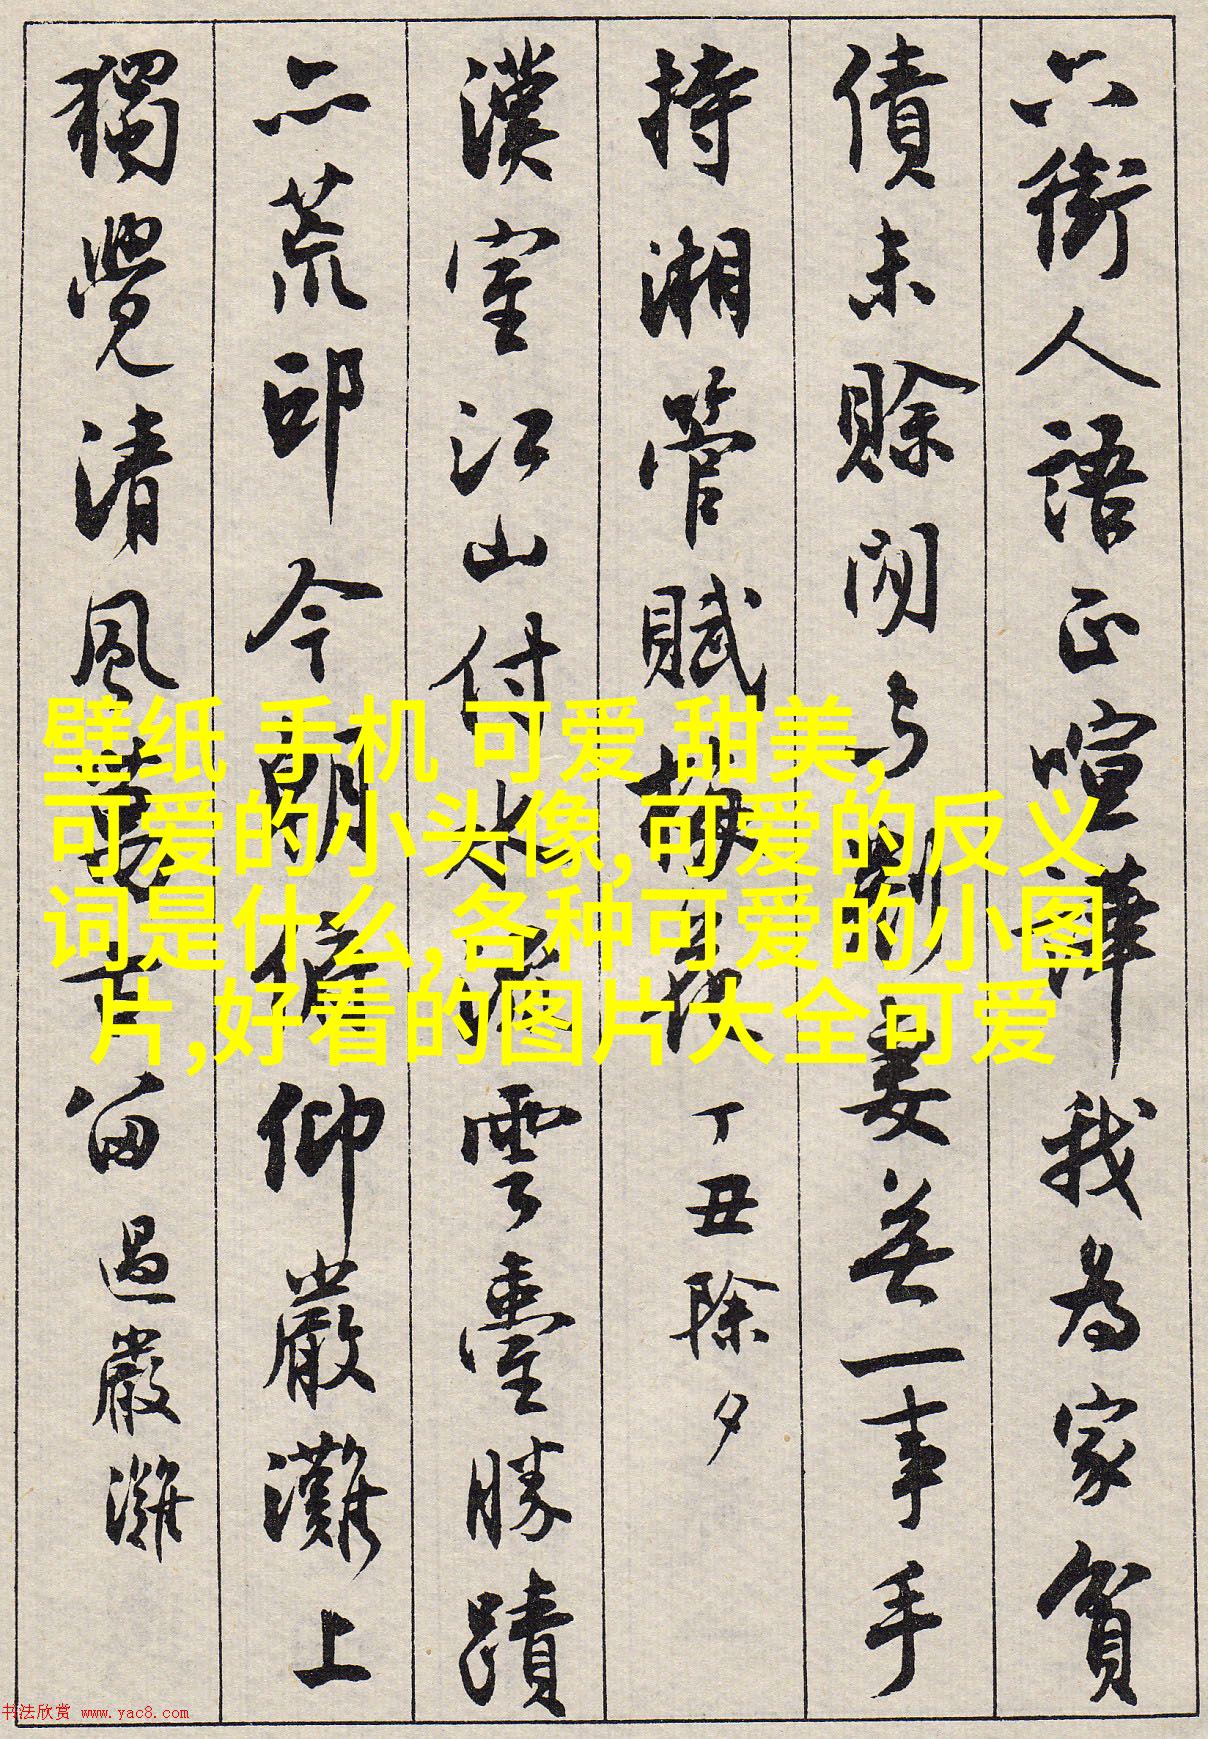 六街人語正喧譁我為家貧
債未賖閒与妻無一事手
持湘管賦梅花丁丑除夕
漢室江山付水流雲臺勝蹟
亦荒邱今朝俯仰嚴灘上
獨覺清風萬古留過嚴灘
壁纸 手机 可爱 甜美,
可爱的小头像,可爱的反义
词是什么,各种可爱的小图
片,好看的图片大全可爱
书法欣赏 www.yac8.com